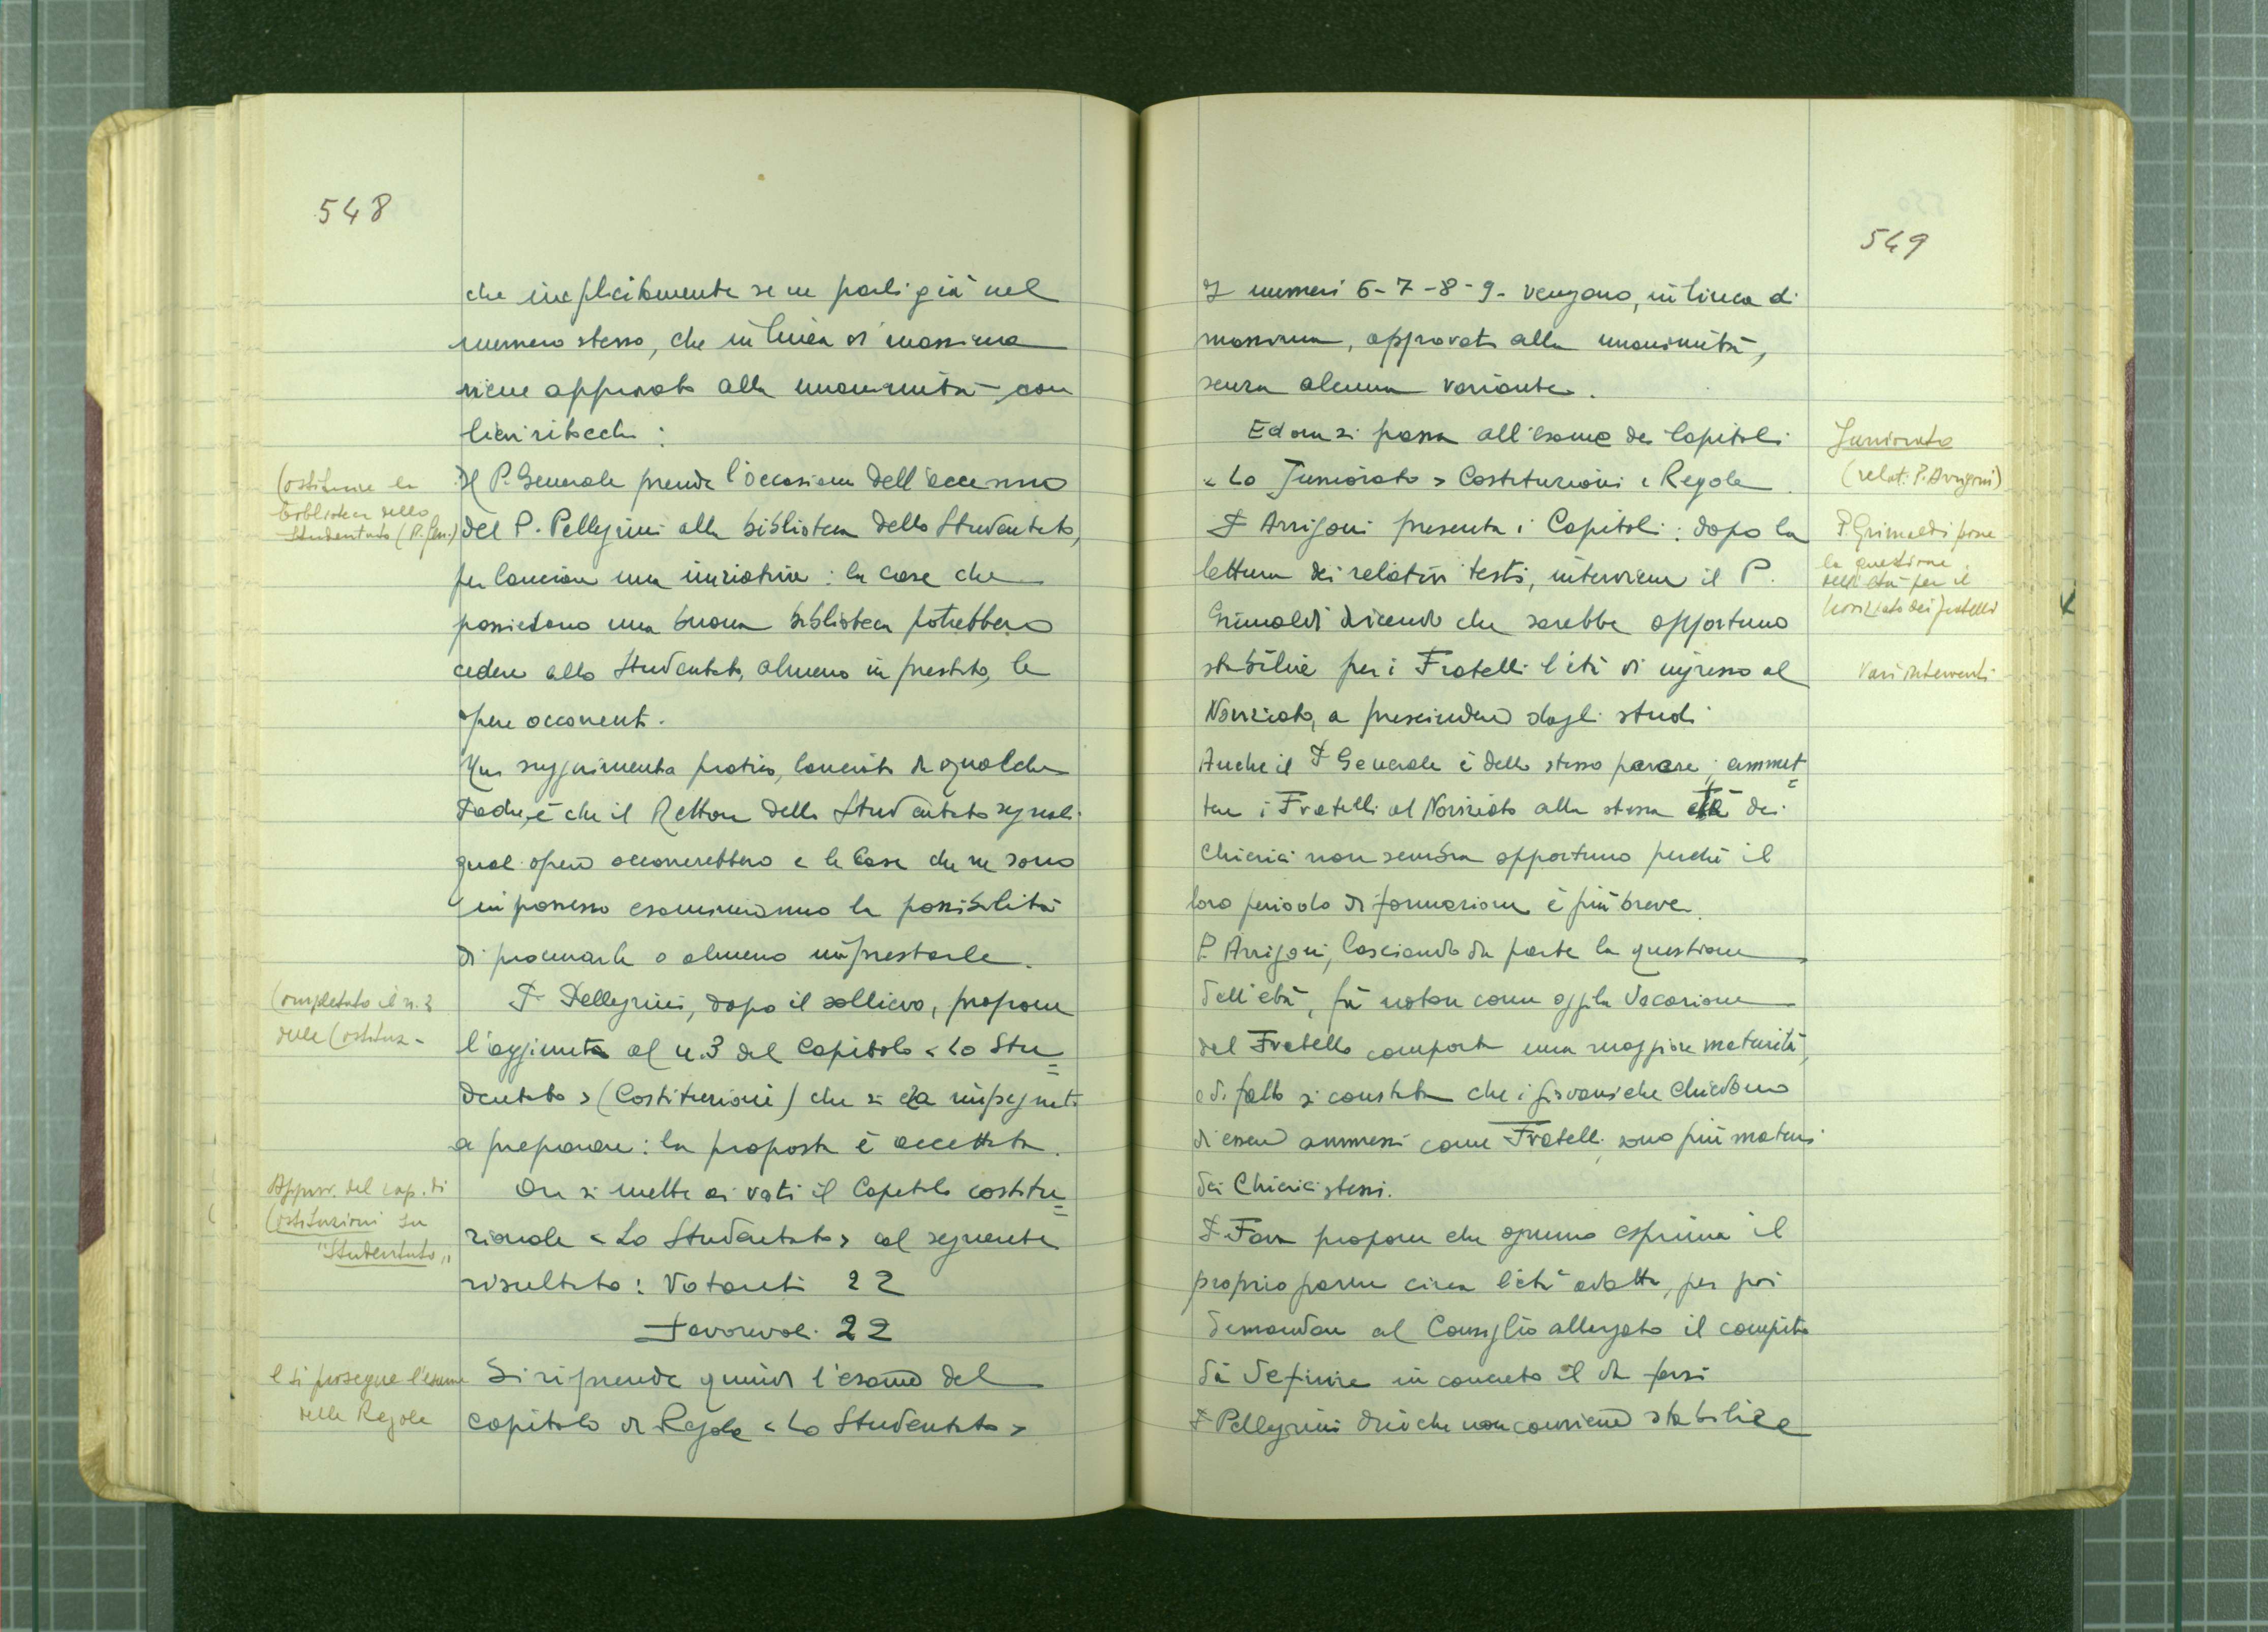 548
che implicitamente se ne parli già nel
numero stesso, che in linea di massima
viene approvato alla unanimità con
lievi ritocchi:
Costituire la
biblioteca dello
Studentato (P. Gen.)
Il P. Generale prende l'occasione dell'accenno
del P. Pellegrini alla biblioteca dello Studentato,
per lanciare una iniziativa: le case che
possiedono una buona biblioteca potrebbero
cedere allo Studentato, almeno in prestito, le
opere occorrenti.
Un suggerimento pratico, lanciato da qualche
Padre, è che il Rettore dello Studentato segnali
quali opere occorrerebbero e le Case che ne sono
in possesso esamineranno la possibilità
di procurarle o almeno imprestarle.
Completato il n. 3
delle Costituz-
P. Pellegrini, dopo il sollievo, propone
l'aggiunta al n. 3 del Capitolo «Lo Stu=
dentato» (Costituzioni) che si era impegnato
a preparare: la proposta è accettata.
Approv. del cap. di
Costituzioni su
"Studentato"
Ora si mette ai voti il Capitolo costitu=
zionale «Lo Studentato» col seguente
risultato: Votanti 22
Favorevoli 22
e si prosegue l'esame
delle Regole
Si riprende quindi l'esame del
capitolo di Regole «Lo Studentato»
549
I numeri 6-7-8-9- vengono, in linea di
massima, approvati alla unanimità,
senza alcuna variante.
Juniorato
(relat. P. Arrigoni)
Ed ora si passa all'esame dei Capitoli
«Lo Juniorato» Costituzioni e Regole.
P. Grimaldi pone
la questione
dell'età per il
Noviziato dei fratelli
P. Arrigoni presenta i Capitoli: dopo la
lettura dei relativi testi, interviene il P.
Grimaldi dicendo che sarebbe opportuno
Vari interventi
stabilire per i Fratelli l'età di ingresso al
Noviziato, a prescindere dagli studi
Anche il P. Generale è dello stesso parere; ammet=
tere i Fratelli al Noviziato alla stessa età dei
Chierici non sembra opportuno perchè il
loro periodo di formazione è più breve.
P. Arrigoni, lasciando da parte la questione
dell'età, fa notare come oggi la Vocazione
del Fratello comporta una maggiore maturità,
e di fatto si constata che i giovani che chiedono
di essere ammessi come Fratelli, sono più maturi
dei Chierici stessi.
P. Fava propone che ognuno esprima il
proprio parere circa l'età adatta, per poi
demandare al Consiglio allargato il compito
di definire in concreto il da farsi
P. Pellegrini dice che non conviene stabilire